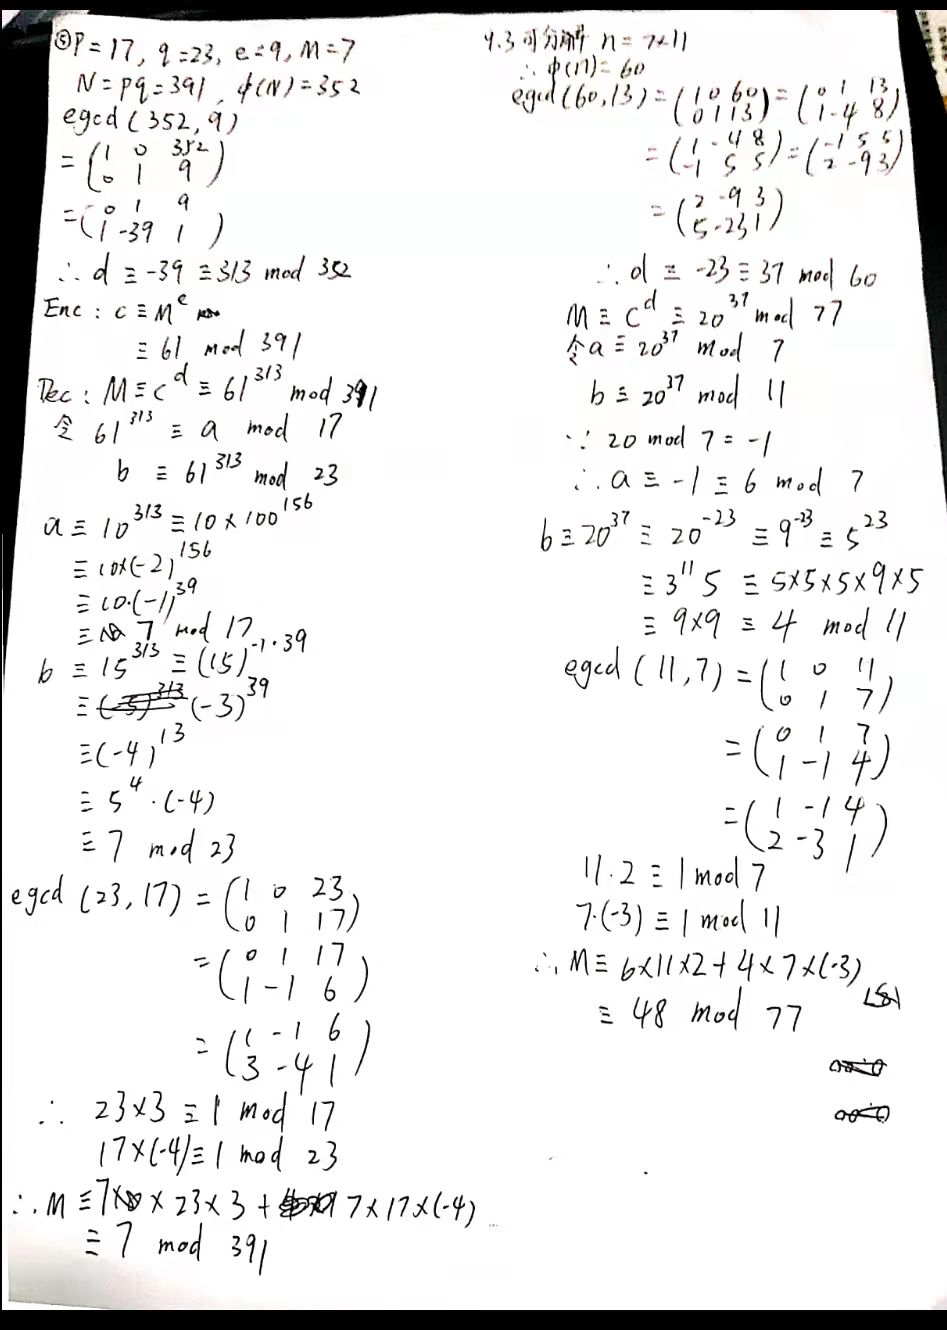 ⑤P=17, q=23, e=9, M=7
N=pq=391, φ(N)=352
egcd(352,9)
=(1 0 352
0 1 9)
=(0 1 9
1 -39 1)
∴ d ≡ -39 ≡ 313 mod 352
Enc: c ≡ M^e
≡ 61 mod 391
Dec: M ≡ c^d ≡ 61^313 mod 391
令 61^313 ≡ a mod 17
b ≡ 61^313 mod 23
a ≡ 10^313 ≡ 10×100^156
≡ 10×(-2)^156
≡ 10·(-1)^39
≡ 7 mod 17
b ≡ 15^313 ≡ (15)^-1·39
≡ (-3)^39
≡ (-4)^13
≡ 5^4·(-4)
≡ 7 mod 23
egcd (23,17) = (1 0 23
0 1 17)
= (0 1 17
1 -1 6)
= (1 -1 6
3 -4 1)
∴ 23×3 ≡ 1 mod 17
17×(-4) ≡ 1 mod 23
∴ M ≡ 7 × 23 × 3 + 7×17×(-4)
≡ 7 mod 391
4.3 可分解 n=7×11
∴ φ(n)=60
egcd(60,13) = (1 0 60
0 1 13) = (0 1 13
1 -4 8)
= (1 -4 8
-1 5 5) = (-1 5 5
2 -9 3)
= (2 -9 3
5 -23 1)
∴ d ≡ -23 ≡ 37 mod 60
M ≡ C^d ≡ 20^37 mod 77
令a ≡ 20^37 mod 7
b ≡ 20^37 mod 11
∵ 20 mod 7 = -1
∴ a ≡ -1 ≡ 6 mod 7
b ≡ 20^37 ≡ 20^-23 ≡ 9^-23 ≡ 5^23
≡ 3^11 5 ≡ 5×5×5×9×5
≡ 9×9 ≡ 4 mod 11
egcd (11,7) = (1 0 11
0 1 7)
= (0 1 7
1 -1 4)
= (1 -1 4
2 -3 1)
11·2 ≡ 1 mod 7
7·(-3) ≡ 1 mod 11
∴ M ≡ 6×11×2+4×7×(-3)
≡ 48 mod 77